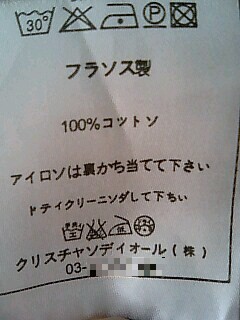 30°
P
フラソス製
100%コットソ
アイロソは裏かち当てて下さい
ドティクリーニソダして下ちい
クリスチャソディオール(株)
03-